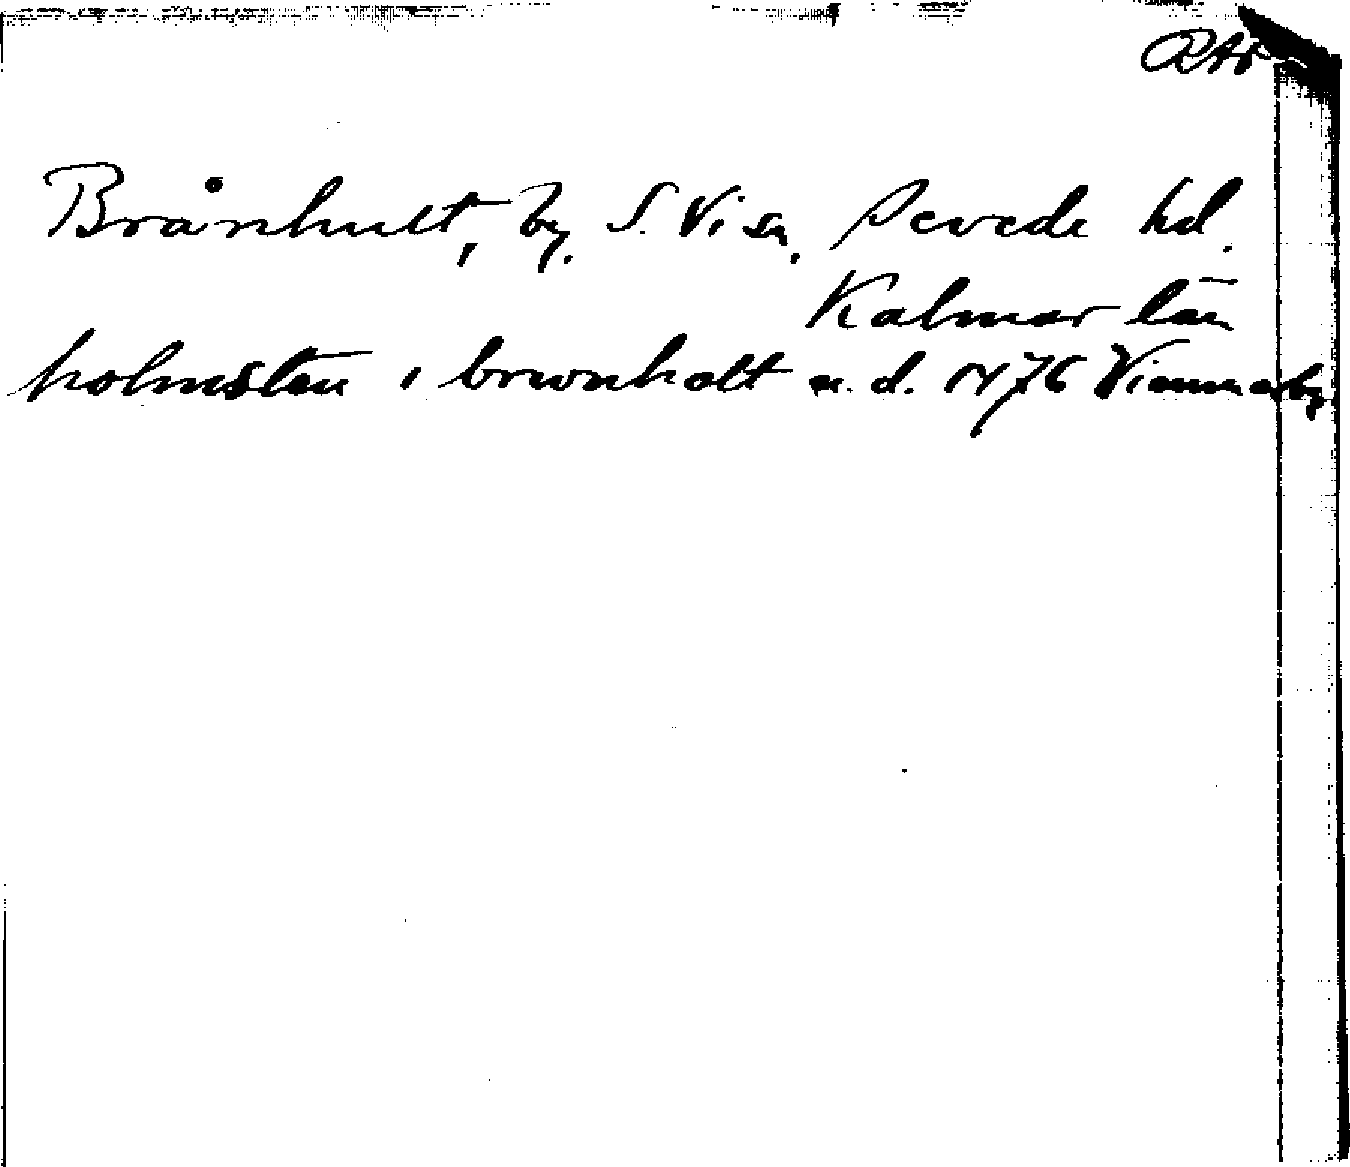 RAP
Brånhult, by. S. Vi sn. Sevede hd.
Kalmar län
holmsten i brwnholt u. d. 1476 Vimmerby